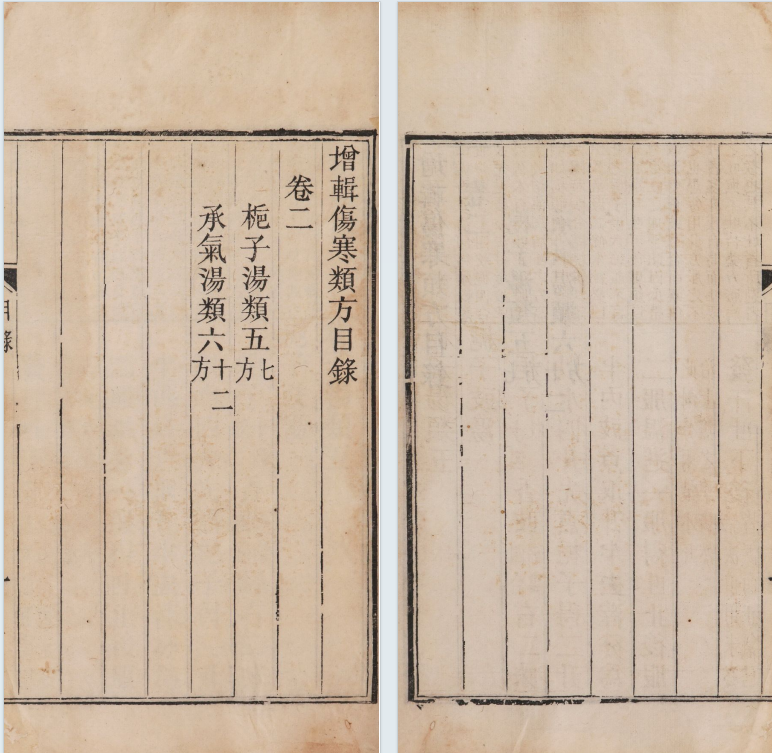 增輯傷寒類方目錄
卷二
梔子湯類五七方
承氣湯類六十二方
目錄